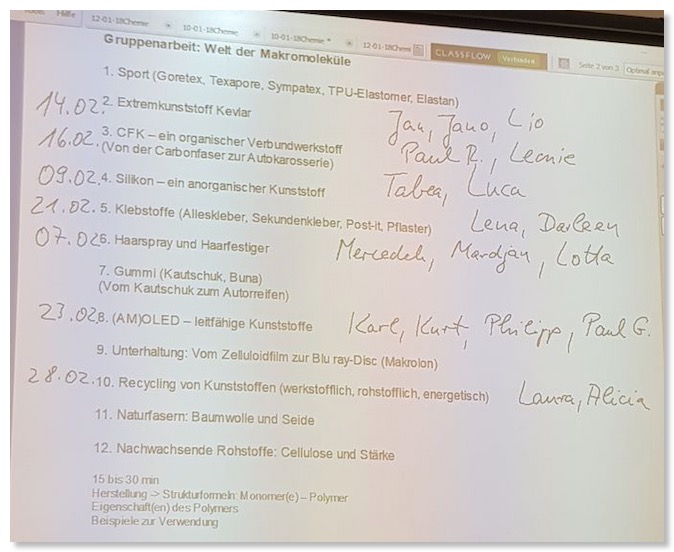 Hilfe
12-01-18Chemie 10-01-18Chemie 10-01-18Chemie * 12-01-18Chemi CLASSFLOW Verbinden Seite 2 von 3 Optimal anpa
Gruppenarbeit: Welt der Makromoleküle
1. Sport (Goretex, Texapore, Sympatex, TPU-Elastomer, Elastan)
14.02. 2. Extremkunststoff Kevlar Jan, Jano, Lio
16.02. 3. CFK – ein organischer Verbundwerkstoff Paul R., Leonie
(Von der Carbonfaser zur Autokarosserie)
09.02. 4. Silikon – ein anorganischer Kunststoff Tabea, Luca
21.02. 5. Klebstoffe (Alleskleber, Sekundenkleber, Post-it, Pflaster) Lena, Darleen
07.02 6. Haarspray und Haarfestiger Mercedeh, Mardjan, Lotta
7. Gummi (Kautschuk, Buna)
(Vom Kautschuk zum Autorreifen)
23.02. 8. (AM)OLED – leitfähige Kunststoffe Karl, Kurt, Philipp, Paul G.
9. Unterhaltung: Vom Zelluloidfilm zur Blu ray-Disc (Makrolon)
28.02. 10. Recycling von Kunststoffen (werkstofflich, rohstofflich, energetisch) Laura, Alicia
11. Naturfasern: Baumwolle und Seide
12. Nachwachsende Rohstoffe: Cellulose und Stärke
15 bis 30 min
Herstellung -> Strukturformeln: Monomer(e) – Polymer
Eigenschaft(en) des Polymers
Beispiele zur Verwendung